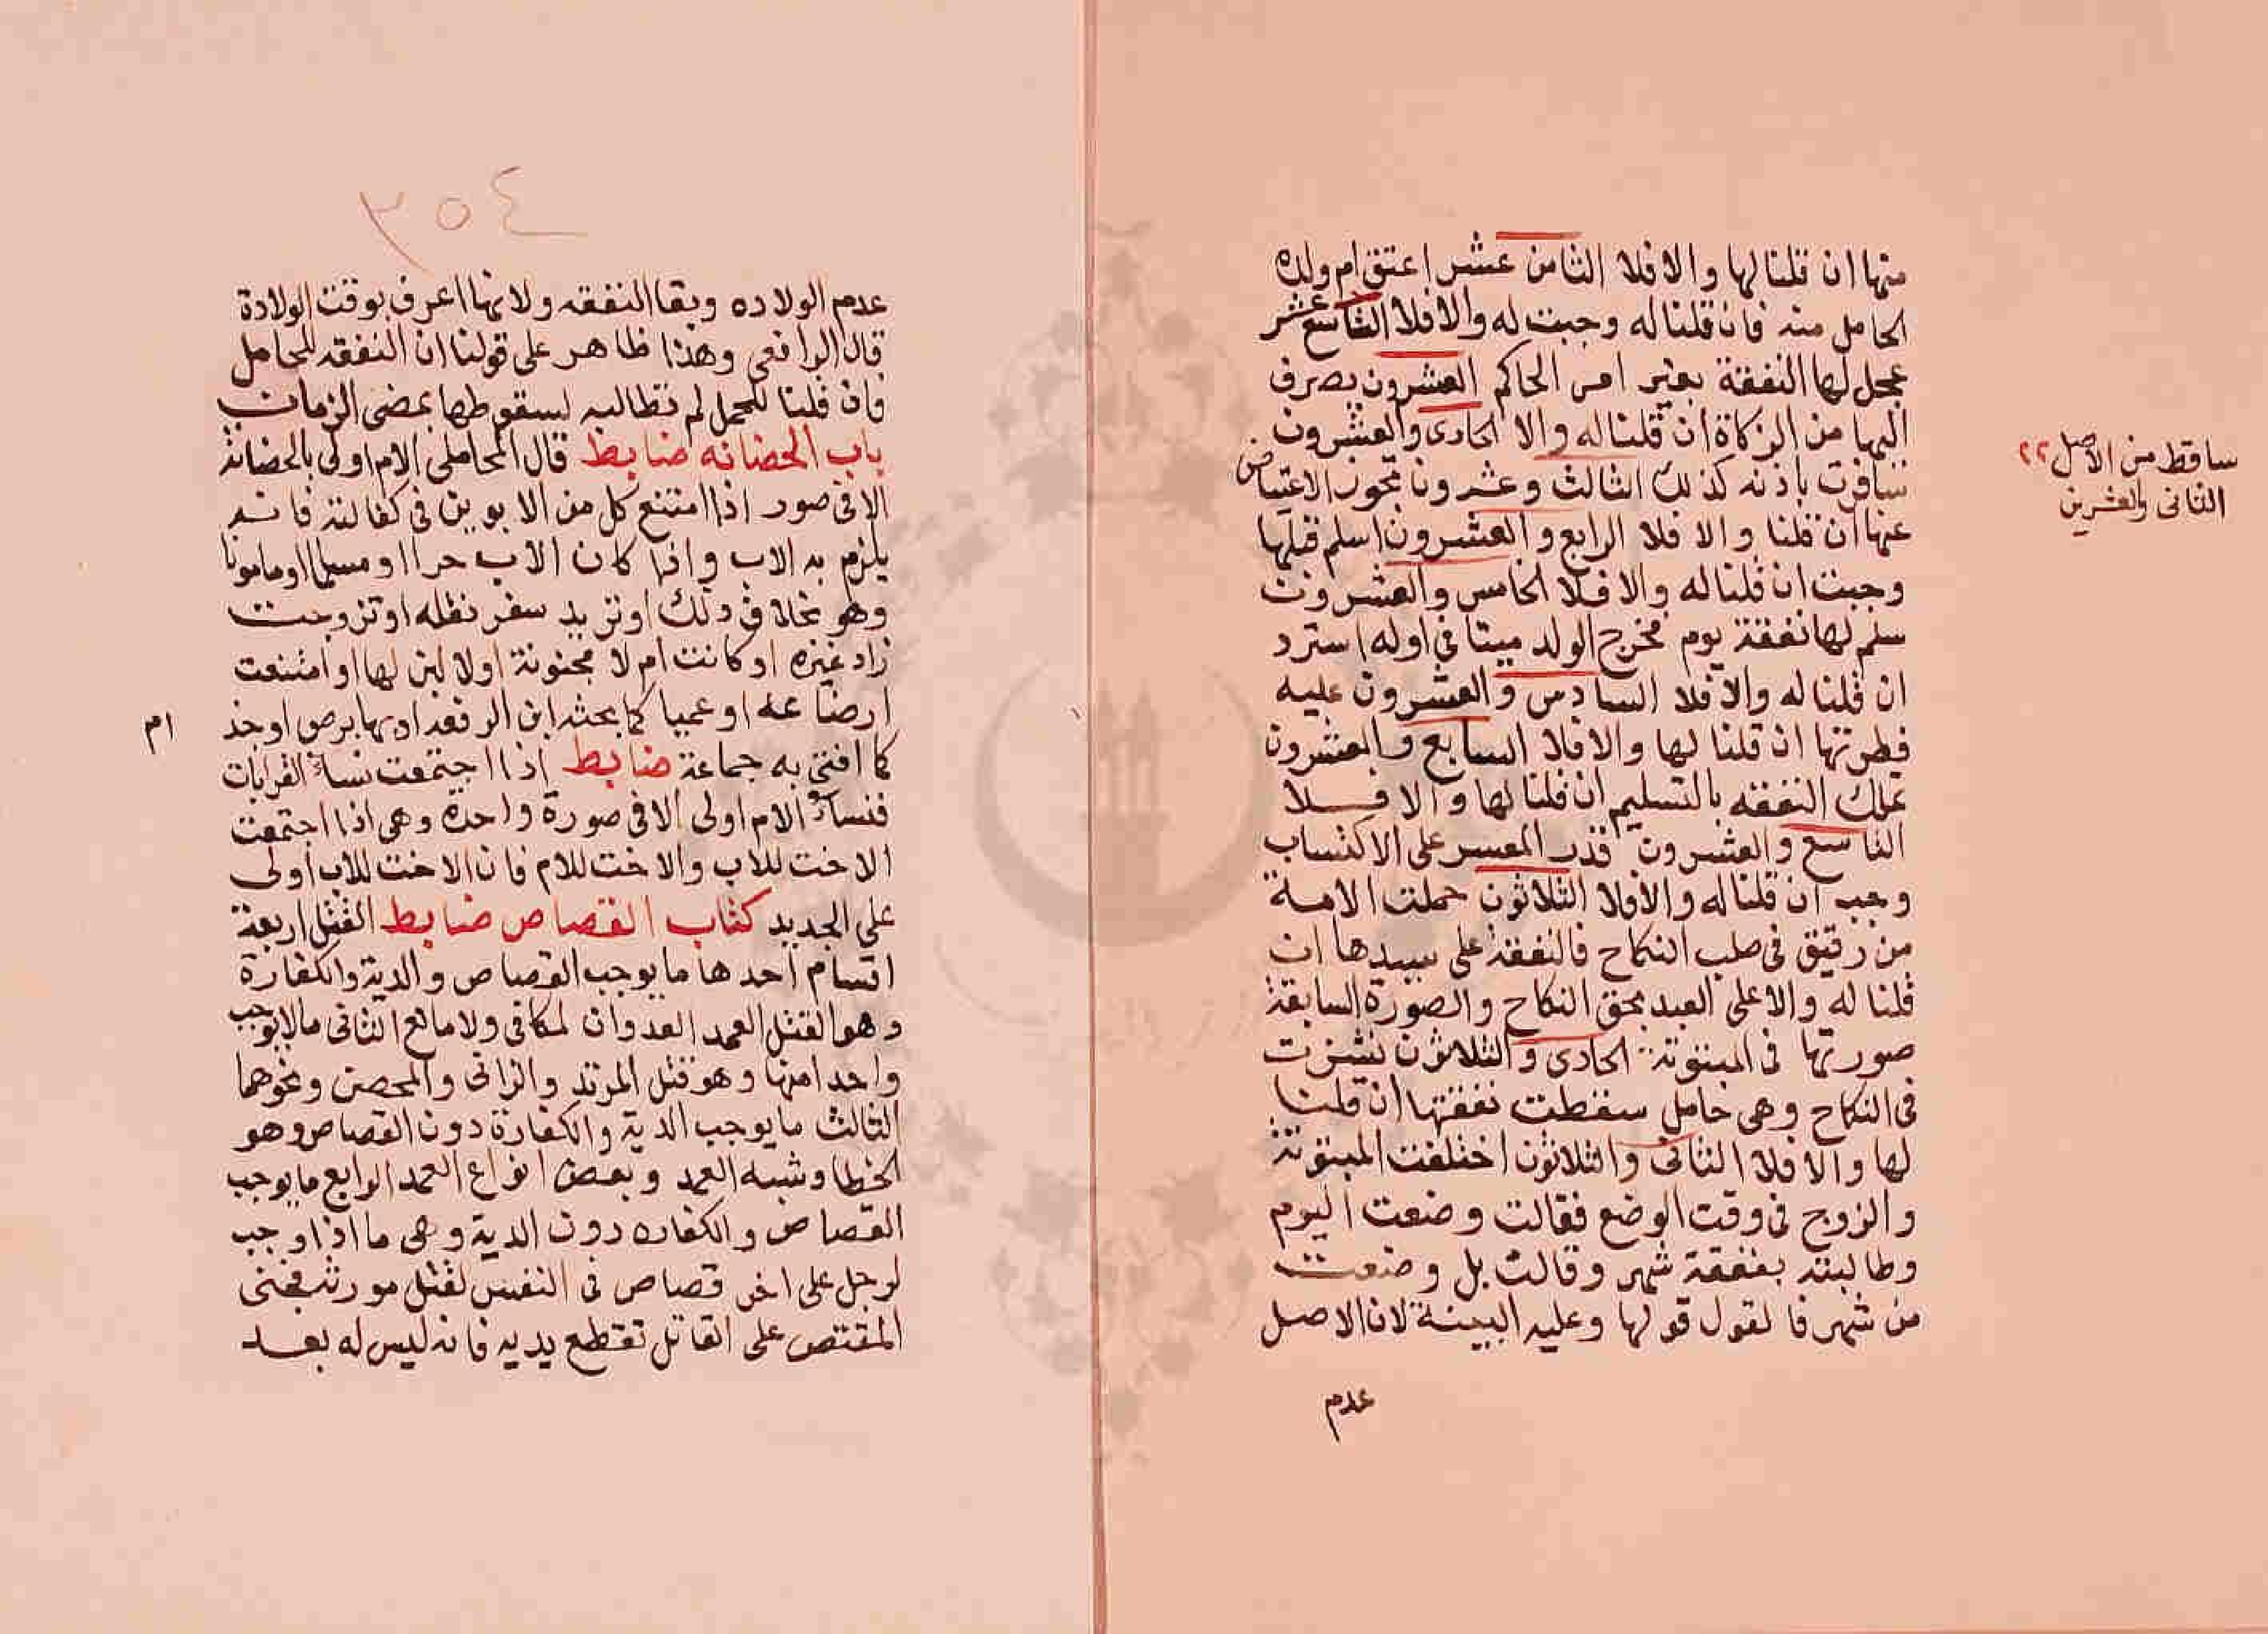 منها ان قلنا لها والا فلا الثامن عشر اعتق ام ولده
الحامل منه فان قلنا له وجبت له والا فلا التاسع عشر
عجل لها النفقة بغير امر الحاكم العشرون يصرف
اليها من الزكاة ان قلنا له والا الحادى والعشرون
سافرت باذنه كذلك الثالث وعشرون تجوز الاعتياض
عنها ان قلنا والا فلا الرابع والعشرون اسلم قبلها
وجبت ان قلنا له والا فلا الخامس والعشرون
سلم لها نفقة يوم فخرج الولد ميتا فى اوله استرد
ان قلنا له والا فلا السادس والعشرون عليه
فطرتها ان قلنا لها والا فلا السابع والعشرون
تملك النفقه بالتسليم ان قلنا لها والا فلا
التاسع والعشرون قدر المعسر على الاكتساب
وجب ان قلنا له والا فلا الثلاثون حملت الامة
من رقيق فى صلب النكاح فالنفقة على سيدها ان
قلنا له والا على العبد بحق النكاح والصورة السابقة
صورتها فى المبتوتة الحادى والثلاثون نشزت
فى النكاح وهى حامل سقطت نفقتها ان قلنا
لها والا فلا الثانى والثلاثون اختلفت المبتوتة
والزوج فى وقت الوضع فقالت وضعت اليوم
وطالبته بنفقة شهر وقالت بل وضعت
من شهر فالقول قولها وعليه البينة لان الاصل
عدم
ساقط من الاصل ٢٢
الثانى والعشرين
٣٥٤
عدم الولاده وبقا النفقه ولانها اعرف بوقت الولادة
قال الرافعى وهذا ظاهر على قولنا ان النفقه للحامل
وان قلنا للحمل لم تطالبه لسقوطها بمضى الزمان
باب الحضانه ضابط قال المحاملى الام اولى بالحضانة
الا فى صور اذا امتنع كل من الابوين فى كفالته فانه
يلزم به الاب واذا كان الاب حرا او مسلما او مامونا
وهو بخلاف ذلك او تريد سفر نقله او تزوجت
زاد غيره او كانت ام لا مجنونة او لا لبن لها او امتنعت
ارضاعه او عميا كما بحثه ابن الرفعه او بها برص او جذ
ام
كما افتى به جماعة ضابط اذا اجتمعت نساء القرابات
فنساء الام اولى الا فى صورة واحدة وهى اذا اجتمعت
الاخت للاب والاخت للام فان الاخت للاب اولى
على الجديد كتاب القصاص ضابط القتل اربعة
اقسام احدها ما يوجب القصاص والدية والكفارة
وهو القتل العمد العدوان لمكافى ولا مانع الثانى ما لا يوجب
واحدا منها وهو قتل المرتد والزانى والمحصن ونحوهما
الثالث ما يوجب الدية والكفارة دون القصاص وهو
الخطا وشبه العمد وبعض انواع العمد الرابع ما يوجب
القصاص والكفاره دون الدية وهى ما اذا وجب
لرجل على اخر قصاص فى النفس لقتل مورثه فجنى
المقتص على القاتل تقطع يديه فانه ليس له بعد